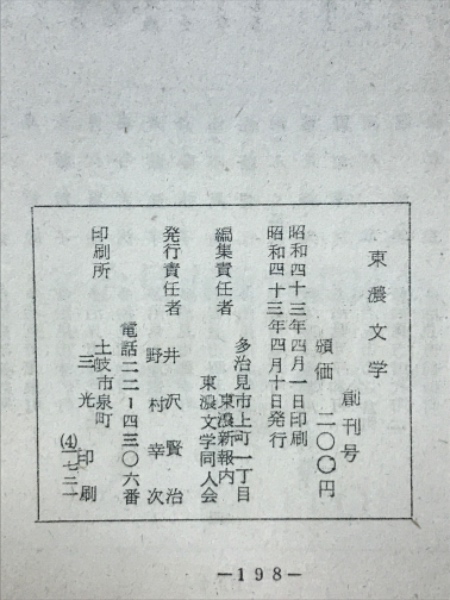 東濃文学
創刊号
頒価 二〇〇円
昭和四十三年四月一日印刷
昭和四十三年四月十日発行
編集責任者
多治見市上町一丁目
東濃新報内
東濃文学同人会
発行責任者
井沢賢治
野村幸次
電話二二ー四三〇六番
印刷所
土岐市泉町
三光印刷
(4)一七二一
—198—